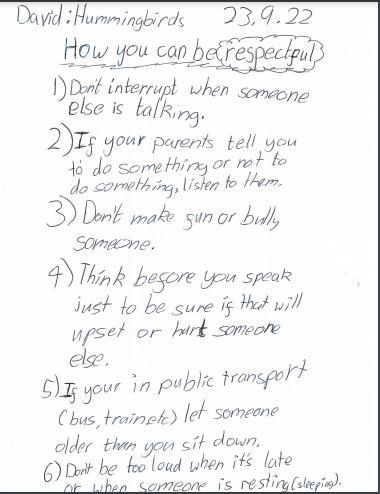 David: Hummingbirds 23.9.22
How you can be respectful
1) Don't interrupt when someone
else is talking.
2) If your parents tell you
to do something or not to
do something, listen to them.
3) Don't make fun or bully
someone.
4) Think before you speak
just to be sure if that will
upset or hurt someone
else.
5) If your in public transport
(bus, train etc) let someone
older than you sit down.
6) Don't be too loud when it's late
or when someone is resting (sleeping).